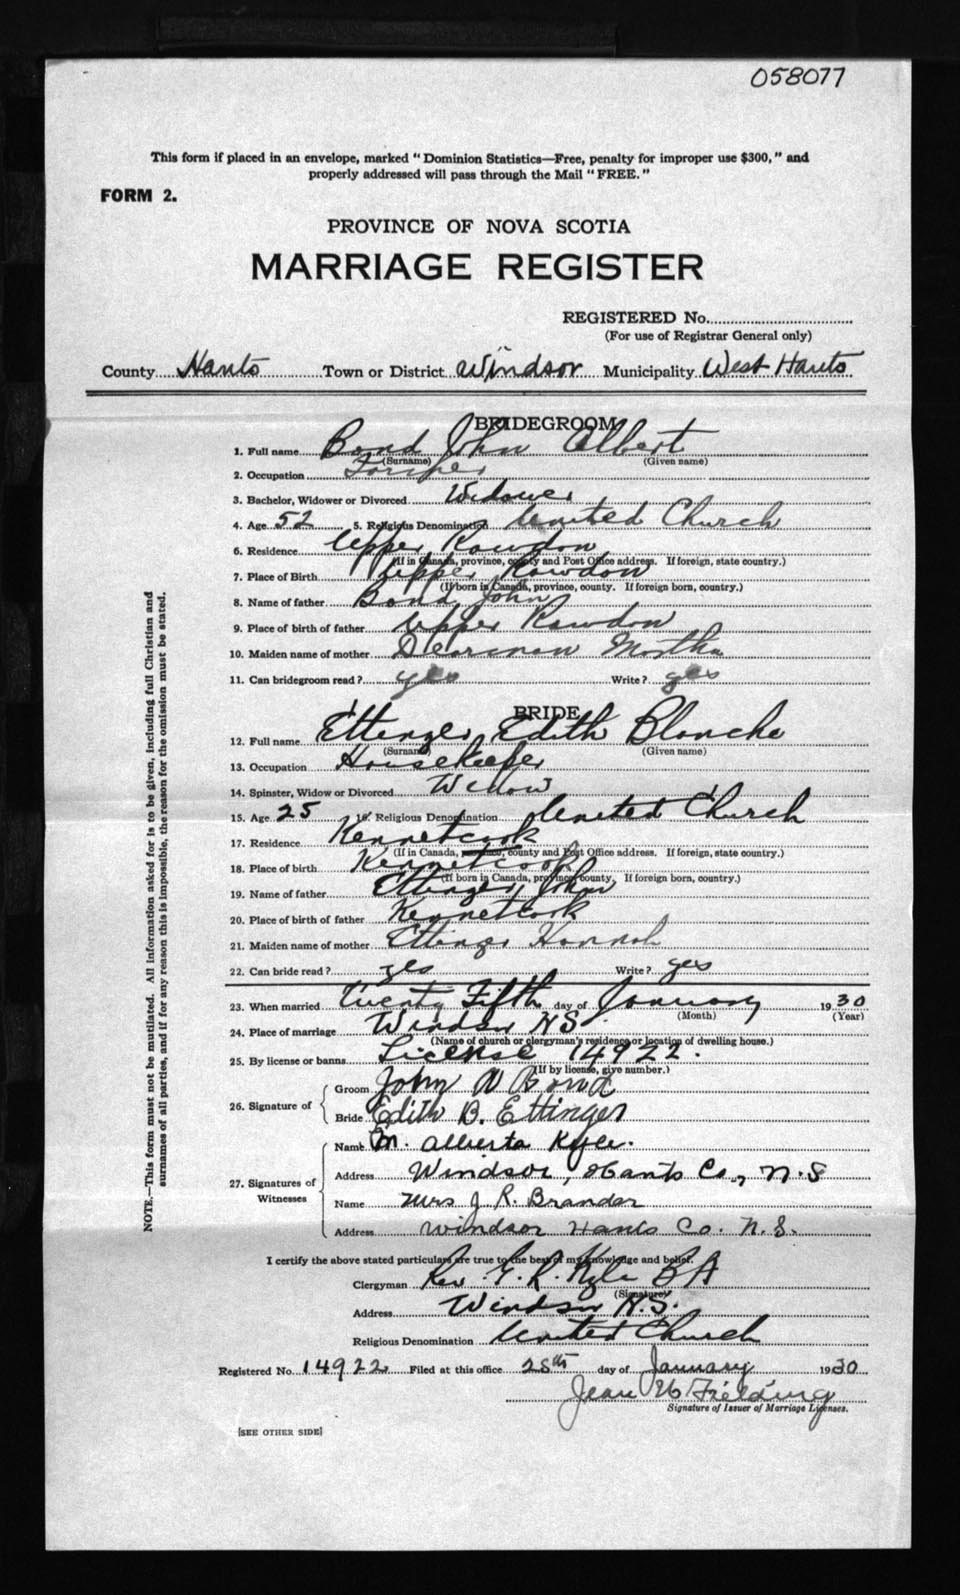 058077
This form if placed in an envelope, marked "Dominion Statistics—Free, penalty for improper use $300," and
properly addressed will pass through the Mail "FREE."
FORM 2.
PROVINCE OF NOVA SCOTIA
MARRIAGE REGISTER
REGISTERED No.
(For use of Registrar General only)
County Hants Town or District Windsor Municipality West Hants
BRIDEGROOM
1. Full name Bond John Albert
(Surname) (Given name)
2. Occupation
3. Bachelor, Widower or Divorced Widower
4. Age 52 5. Religious Denomination United Church
6. Residence Upper Rawdon
(If in Canada, province, county and Post Office address. If foreign, state country.)
7. Place of Birth Upper Rawdon
(If born in Canada, province, county. If foreign born, country.)
8. Name of father Bond, John
9. Place of birth of father Upper Rawdon
10. Maiden name of mother Martha
11. Can bridegroom read? yes Write? yes
BRIDE
12. Full name Ettinger, Edith Blanche
(Surname) (Given name)
13. Occupation Housekeeper
14. Spinster, Widow or Divorced Widow
15. Age 25 16. Religious Denomination United Church
17. Residence Kennetcook
(If in Canada, province, county and Post Office address. If foreign, state country.)
18. Place of birth Kennetcook
(If born in Canada, province, county, If foreign born, country.)
19. Name of father Ettinger, John
20. Place of birth of father Kennetcook
21. Maiden name of mother Ettinger Hannah
22. Can bride read? yes Write? yes
23. When married Twenty Fifth day of January 1930
(Month) (Year)
24. Place of marriage Windsor NS.
(Name of church or clergyman's residence or location of dwelling house.)
25. By license or banns License 14922.
(If by license, give number.)
26. Signature of
Groom John Bond
Bride Edith B. Ettinger
27. Signatures of Witnesses
Name M. Alberta Kyle.
Address Windsor, Hants Co., N.S
Name Mrs J. R. Brander
Address Windsor Hants Co. N.S.
I certify the above stated particulars are true to the best of my knowledge and belief.
Clergyman Rev. G. R. Kyle BA
(Signature)
Address Windsor N.S.
Religious Denomination United Church
Registered No. 14922 Filed at this office 28th day of January 1930
Jean Fielding
Signature of Issuer of Marriage Licenses.
[SEE OTHER SIDE]
NOTE.—This form must not be mutilated. All information asked for is to be given, including full Christian and
surnames of all parties, and if for any reason this is impossible, the reason for the omission must be stated.